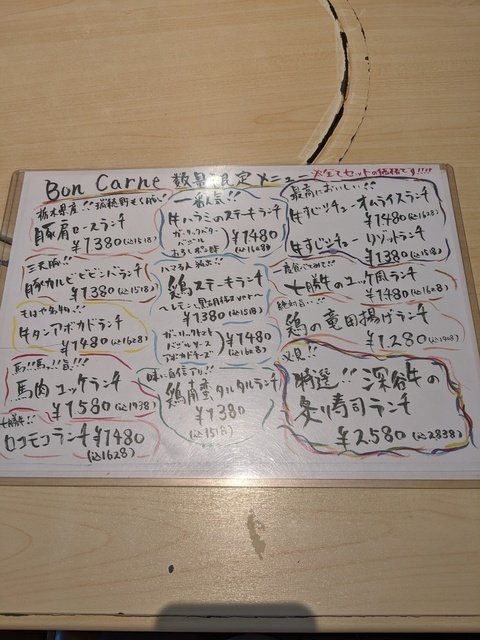 Bon Carne 数量限定メニュー ※全てセットの価格です!!!!
栃木県産!!
豚肩ロースランチ
¥1380(込1518)
豚カルビビビンバランチ
¥1380(込1518)
もはや名物!!
牛タンアボカドランチ
¥1480(込1628)
馬!!馬!!旨!!!
馬肉ユッケランチ
¥1580(込1738)
ロコモコランチ ¥1480
(込1628)
一番人気!!
牛ハラミのステーキランチ
ガーリックバター
バジル
おろしポン酢
¥1480
(込1628)
ハマる人続出!!
鶏ステーキランチ
¥1380(込1518)
バジルチーズ
アボカドチーズ
¥1480
(込1628)
味に自信アリ!!
鶏南蛮タルタルランチ
¥1380
(込1518)
最高においしい!!
牛すじシチューオムライスランチ
¥1480(込1628)
牛すじシチューリゾットランチ
¥1380(込1518)
一度食べてみて!!
十勝牛のユッケ風ランチ
¥1480(込1628)
絶対旨い!!
鶏の竜田揚げランチ
¥1280(込1408)
必見!!
特選!!深谷牛の
炙り寿司ランチ
¥2580(込2838)